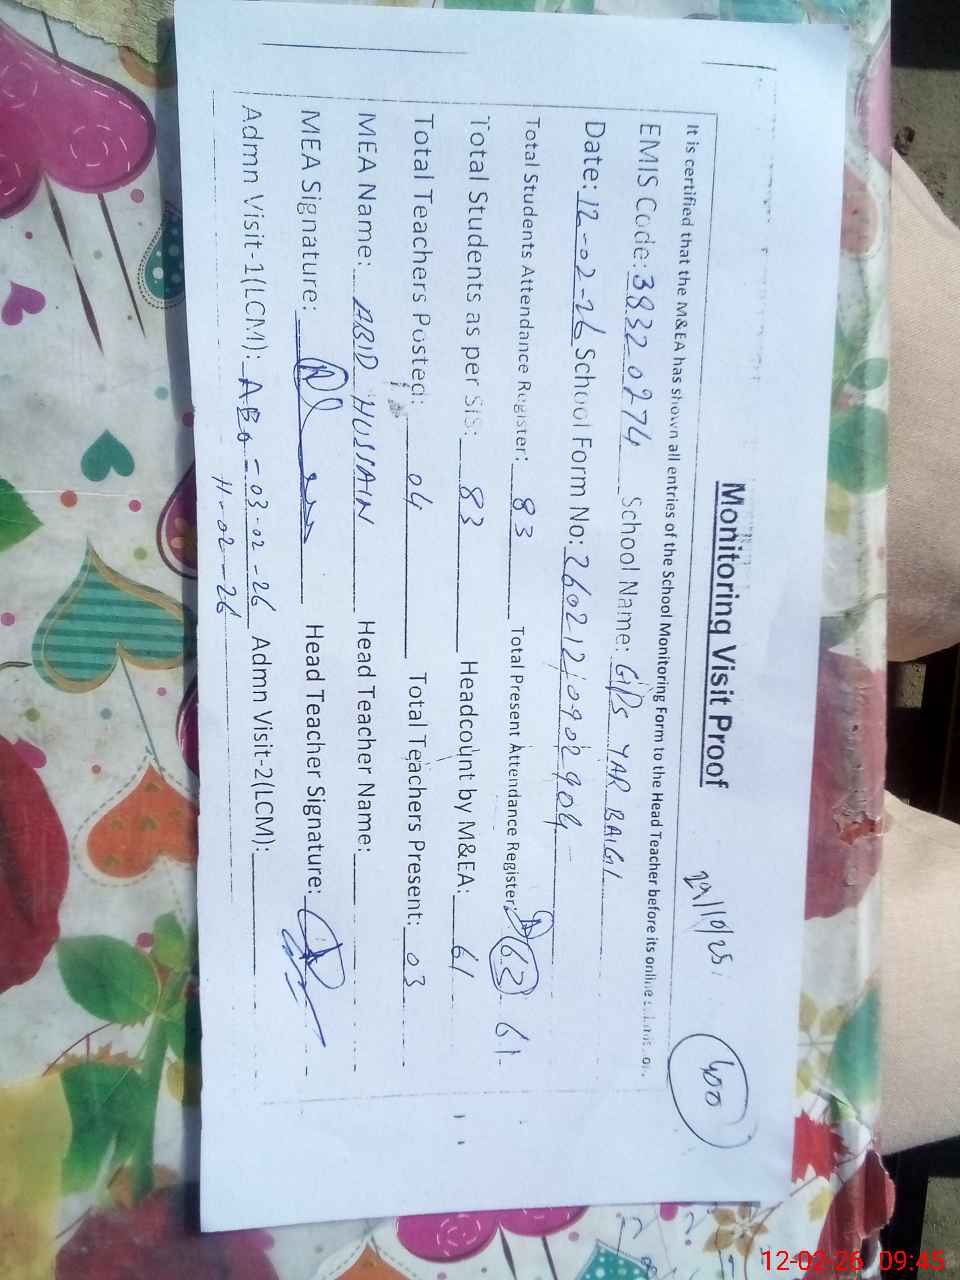 Monitoring Visit Proof
29/10/25
400
It is certified that the M&EA has shown all entries of the School Monitoring Form to the Head Teacher before its online
EMIS Code: 38320274 School Name: GPS YAR BAIGI
Date: 12-02-26 School Form No: 260212
Total Students Attendance Register: 83 Total Present Attendance Register: 62 61
Total Students as per SIS: 83 Headcount by M&EA: 61
Total Teachers Posted: 04 Total Teachers Present: 03
MEA Name: ABID HUSSAIN Head Teacher Name:
MEA Signature: Head Teacher Signature:
Admn Visit-1(LCM): 03-02-26 Admn Visit-2(LCM):
11-02-26
12-02-26 09:45